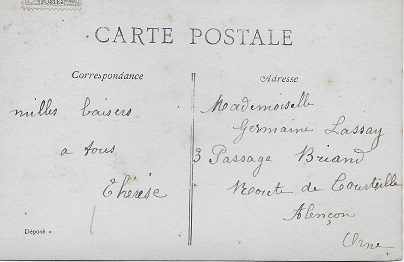 CARTE POSTALE
Correspondance
Adresse
milles baisers
a tous
Thérèse
Mademoiselle
Germaine Lassay
3 Passage Briand
Route de Courteille
Alençon
Orne
Déposé